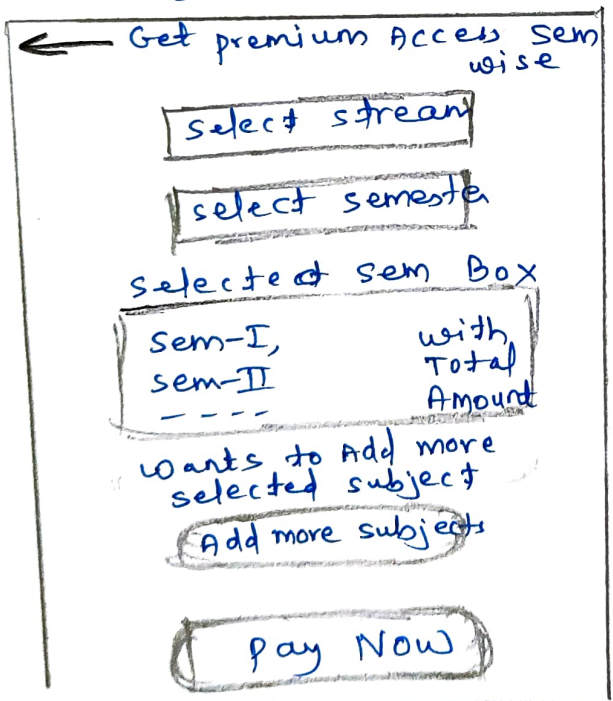 Get premium Access Sem
wise
select stream
select semester
selected sem Box
Sem-I, with
sem-II Total
---- Amount
wants to Add more
selected subject
Add more subjects
Pay Now